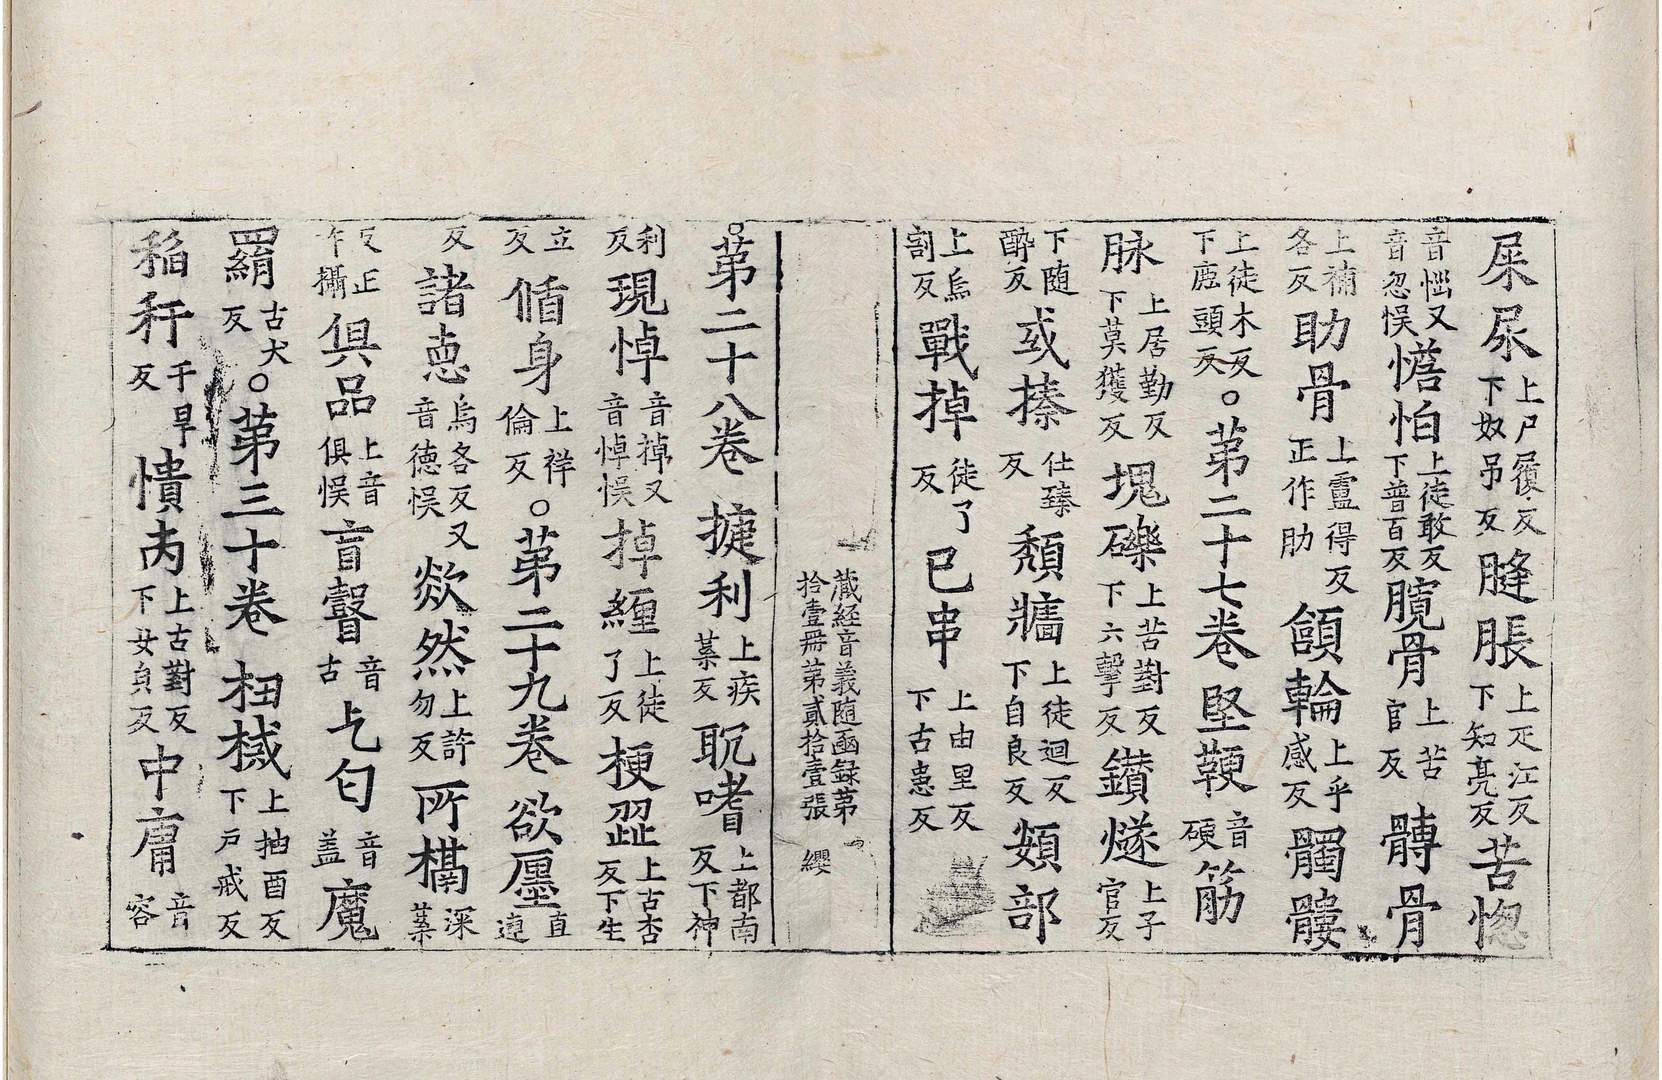 屎尿上尸履反下奴吊反膖脹上疋江反下知亮反苦惚
音惱又音忽悮憺怕上徒敢反下普百反髖骨上苦官反髆骨
上補各反肋骨上盧得反正作肋頷輪上乎感反髑髏
上徒木反下鹿頭反○第二十七卷堅鞕音硬筋
脉上居勤反下莫獲反塊礫上苦對反下六擊反鑽燧上子官反
下随醉反或搸仕臻反頹牆上徒迴反下自良反纇部
上烏割反戰掉徒了反已串上由里反下古患反
藏経音義随函録第拾壹冊第貳拾壹張 纓
○第二十八卷㨗利上疾葉反耽嗜上都南反下神
利反現悼音掉又音悼悮掉纏上徒了反梗澀上古杏反下生
立反循身上祥倫反○第二十九卷欲㕓直連
反諸惪烏各反又音德悮欻然上許勿反所槅深葉
反正作攝俱品上音俱悮盲瞽音古乞匄音盖魔
羂古犬反○第三十卷杻械上抽酉反下戶戒反
稲稈干旱反憒丙上古對反下女貞反中庸音容